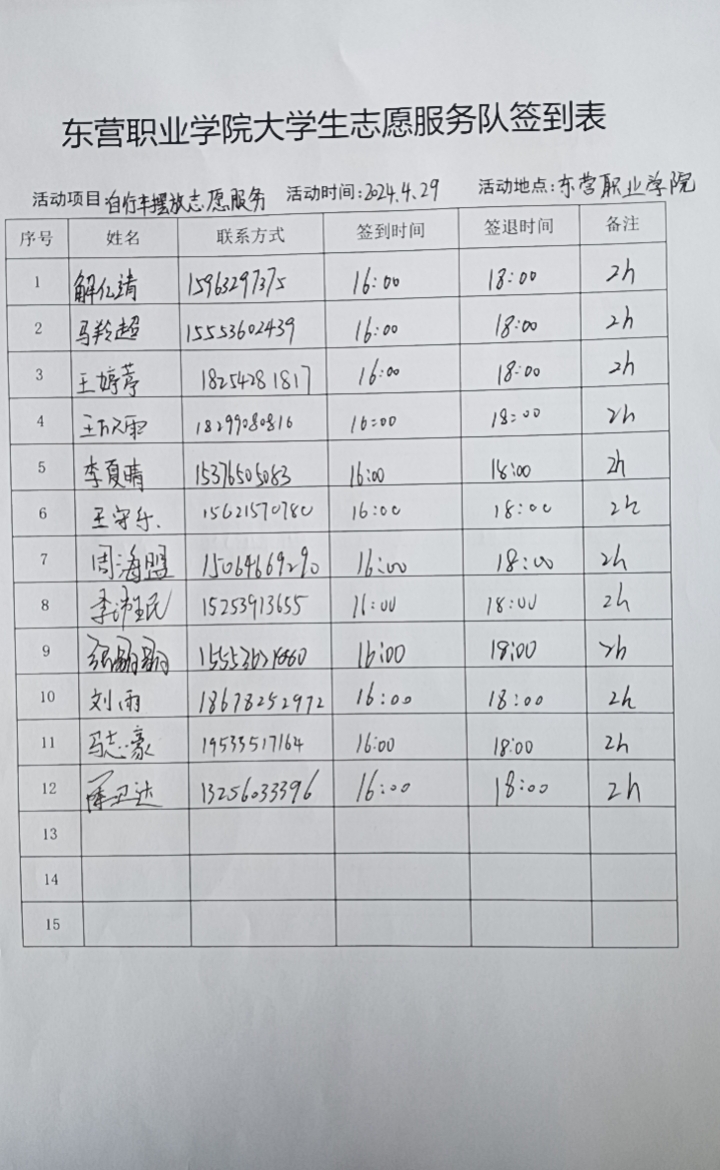 东营职业学院大学生志愿服务队签到表
活动项目:自行车摆放志愿服务 活动时间:2024.4.29 活动地点:东营职业学院
序号 姓名 联系方式 签到时间 签退时间 备注
1 解仁靖 15963297375 16:00 18:00 2h
2 马羚超 15553602439 16:00 18:00 2h
3 王婷葶 18254281817 16:00 18:00 2h
4 18299080816 16:00 18:00 2h
5 李夏晴 15376505083 16:00 18:00 2h
6 王守乐. 15621570780 16:00 18:00 2h
7 周海盟 15064669290 16:00 18:00 2h
8 李沛民 15253913655 16:00 18:00 2h
9 16:00 18:00 2h
10 刘雨 18678252972 16:00 18:00 2h
11 马志豪 19533517164 16:00 18:00 2h
12 卫达 13256033396 16:00 18:00 2h
13
14
15